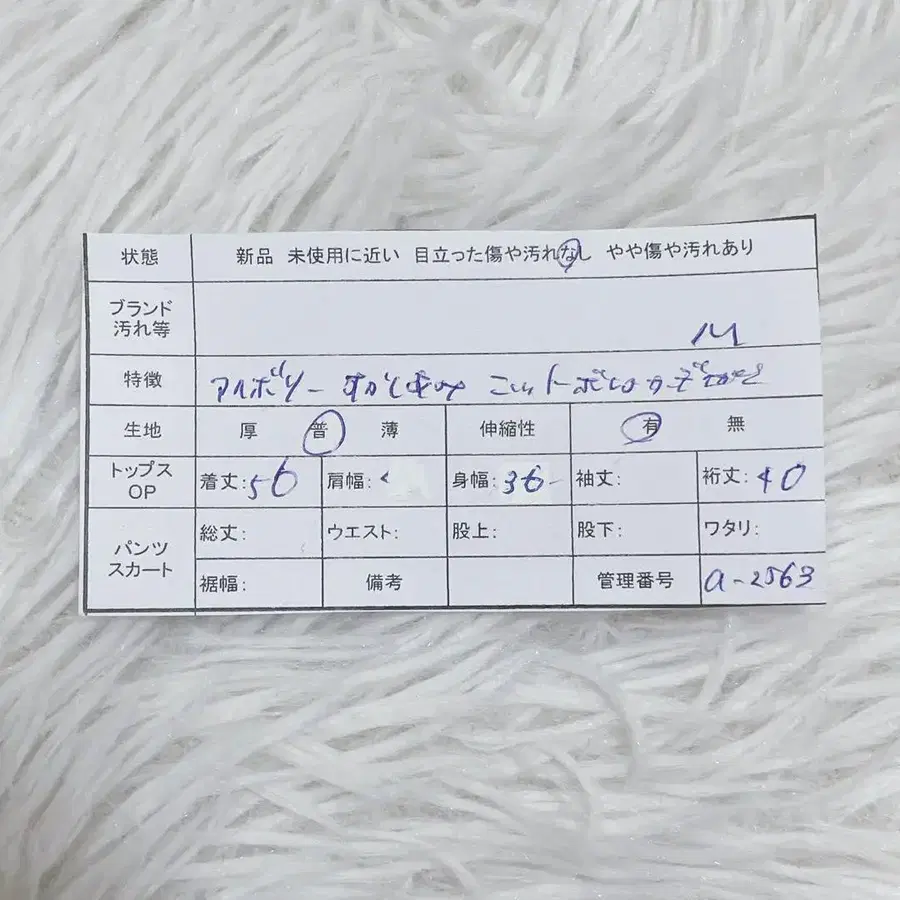 状態 新品 未使用に近い 目立った傷や汚れなし やや傷や汚れあり
ブランド
汚れ等 M
特徴 アイボリー すかしあみ ニット
生地 厚 普 薄 伸縮性 有 無
トップス
OP 着丈:56 肩幅: 身幅:36 袖丈: 裄丈:40
パンツ
スカート
総丈: ウエスト: 股上: 股下: ワタリ:
裾幅: 備考 管理番号 a-2563